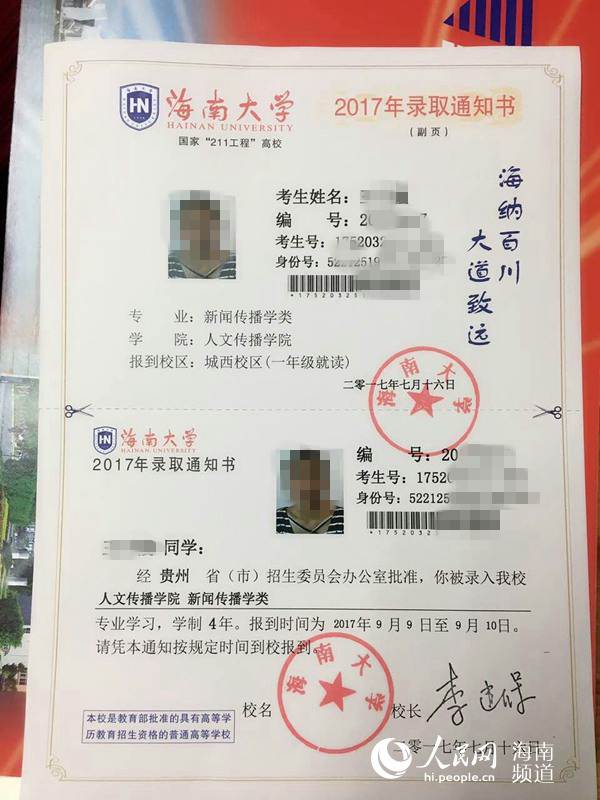 HN
海南大学
HAINAN UNIVERSITY
国家“211工程”高校
2017年录取通知书
(副页)
海纳百川
大道致远
考生姓名:
编 号:20 7
考生号:1752032
身份号:52212519
*17520325
专 业:新闻传播学类
学 院:人文传播学院
报到校区:城西校区(一年级就读)
二零一七年七月十六日
海南大学
HN
海南大学
HAINAN UNIVERSITY
2017年录取通知书
编 号:20
考生号:17520
身份号:522125
*17520325
同学:
经 贵州 省(市)招生委员会办公室批准,你被录入我校
人文传播学院 新闻传播学类
专业学习,学制 4年。报到时间为 2017年 9 月 9 日至 9 月 10日。
请凭本通知按规定时间到校报到。
海南大学
校名
校长 李建保
本校是教育部批准的具有高等学
历教育招生资格的普通高等学校
二零一七年七月十六日
人民网 海南
频道
hi.people.cn